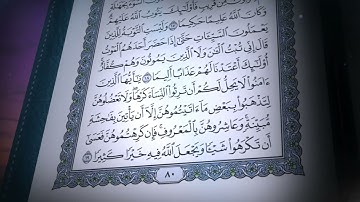 مِن قَرِيبٍ فَأُو۟لَٰٓئِكَ يَتُوبُ ٱللَّهُ عَلَيْهِمْ
وَكَانَ ٱللَّهُ عَلِيمًا حَكِيمًا ١٧ وَلَيْسَتِ ٱلتَّوْبَةُ لِلَّذِينَ
يَعْمَلُونَ ٱلسَّيِّـَٔاتِ حَتَّىٰٓ إِذَا حَضَرَ أَحَدَهُمُ ٱلْمَوْتُ
قَالَ إِنِّى تُبْتُ ٱلْـَٰٔنَ وَلَا ٱلَّذِينَ يَمُوتُونَ وَهُمْ كُفَّارٌ
أُو۟لَٰٓئِكَ أَعْتَدْنَا لَهُمْ عَذَابًا أَلِيمًا ١٨ يَٰٓأَيُّهَا ٱلَّذِينَ
ءَامَنُوا۟ لَا يَحِلُّ لَكُمْ أَن تَرِثُوا۟ ٱلنِّسَآءَ كَرْهًا وَلَا تَعْضُلُوهُنَّ
لِتَذْهَبُوا۟ بِبَعْضِ مَآ ءَاتَيْتُمُوهُنَّ إِلَّآ أَن يَأْتِينَ بِفَٰحِشَةٍ
مُّبَيِّنَةٍ وَعَاشِرُوهُنَّ بِٱلْمَعْرُوفِ فَإِن كَرِهْتُمُوهُنَّ فَعَسَىٰٓ
أَن تَكْرَهُوا۟ شَيْـًٔا وَيَجْعَلَ ٱللَّهُ فِيهِ خَيْرًا كَثِيرًا ١٩
٨٠